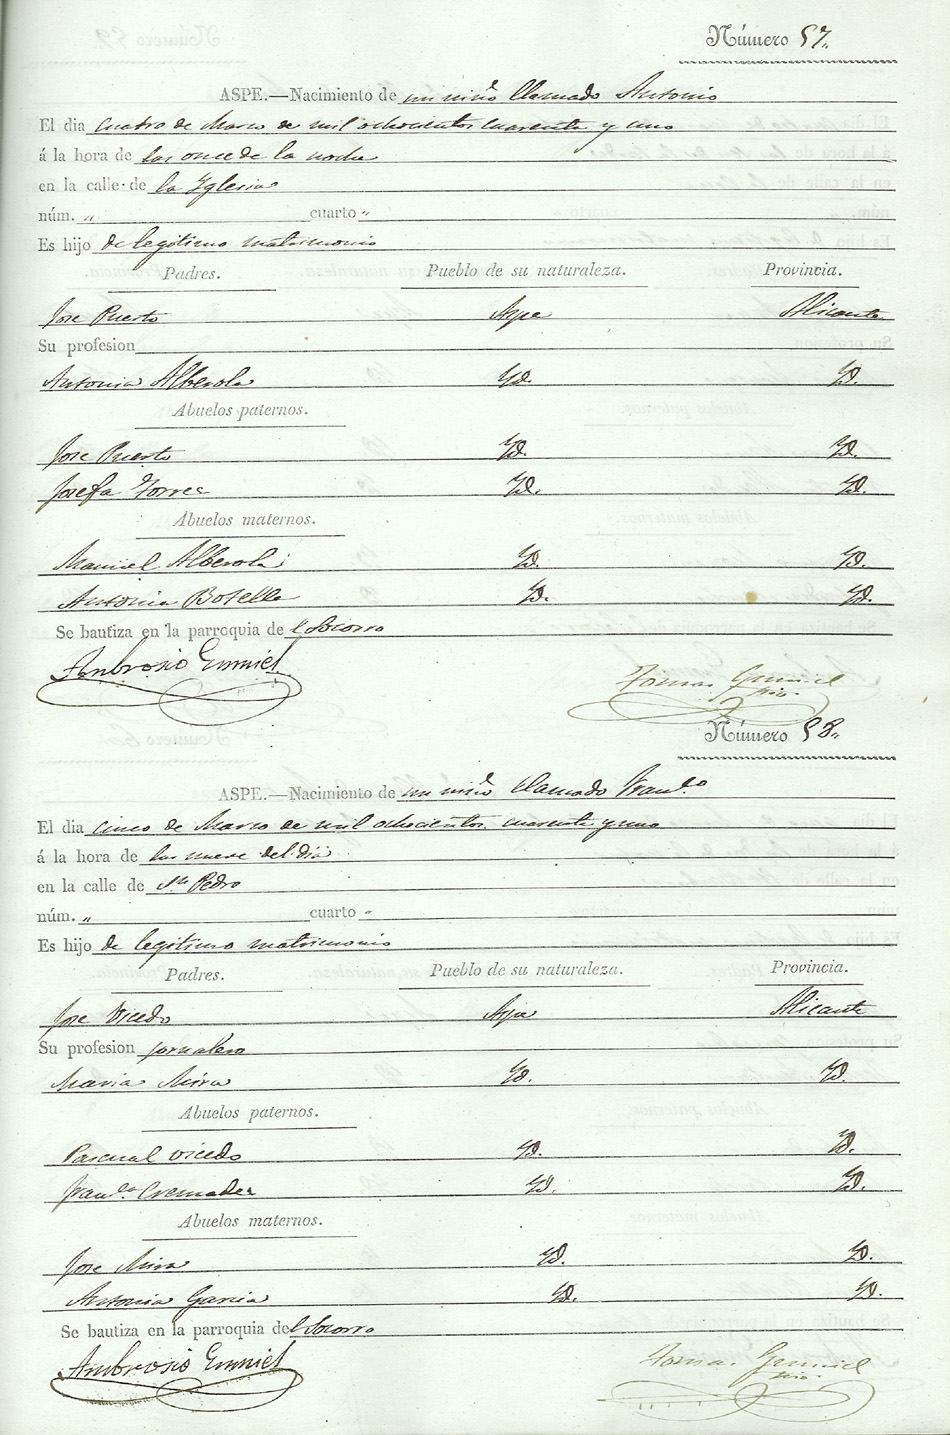 Número 57.,
ASPE.—Nacimiento de un niño llamado Antonio
El dia cuatro de Marzo de mil ochocientos cuarenta y uno
á la hora de las once de la noche
en la calle de la Yglesia
núm. „ cuarto „
Es hijo de legitimo matrimonio
Padres. Pueblo de su naturaleza. Provincia.
Jose Puerto Aspe Alicante
Su profesion
Antonia Alberola Yd. Yd.
Abuelos paternos.
Jose Puerto Yd. Yd.
Josefa Torres Yd. Yd.
Abuelos maternos.
Manuel Alberola Yd. Yd.
Antonia Botella Yd. Yd.
Se bautiza en la parroquia del Socorro
Ambrosio Tomas
Número 58.,
ASPE.—Nacimiento de un niño llamado Franco
El dia cinco de Marzo de mil ochocientos cuarenta y uno
á la hora de las nueve del dia
en la calle de Sn Pedro
núm. „ cuarto „
Es hijo de legitimo matrimonio
Padres. Pueblo de su naturaleza. Provincia.
Jose Vicedo Aspe Alicante
Su profesion jornalero
Maria Mira Yd. Yd.
Abuelos paternos.
Pascual Vicedo Yd. Yd.
Franca Cremades Yd. Yd.
Abuelos maternos.
Jose Mira Yd. Yd.
Antonia Garcia Yd. Yd.
Se bautiza en la parroquia del Socorro
Ambrosio Tomas